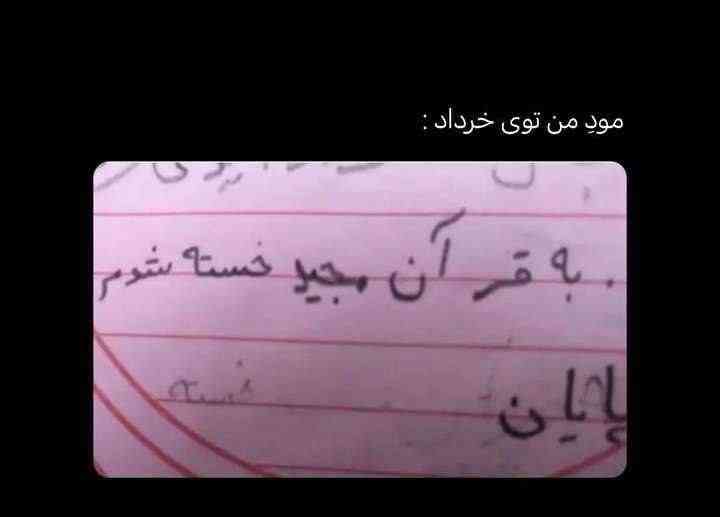 مودِ من توی خرداد :
. به قرآن مجید خسته شدم
پایان
خسته